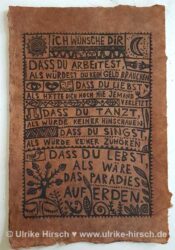 ICH WÜNSCHE DIR
DASS DU ARBEITEST,
ALS WÜRDEST DU KEIN GELD BRAUCHEN
DASS DU LIEBST,
ALS HÄTTE DICH NOCH NIE JEMAND
VERLETZT
DASS DU TANZT,
ALS WÜRDE KEINER HINSCHAUEN
DASS DU SINGST,
ALS WÜRDE KEINER ZUHÖREN
DASS DU LEBST,
ALS WÄRE
DAS PARADIES
AUF ERDEN
© Ulrike Hirsch ♥ www.ulrike-hirsch.de